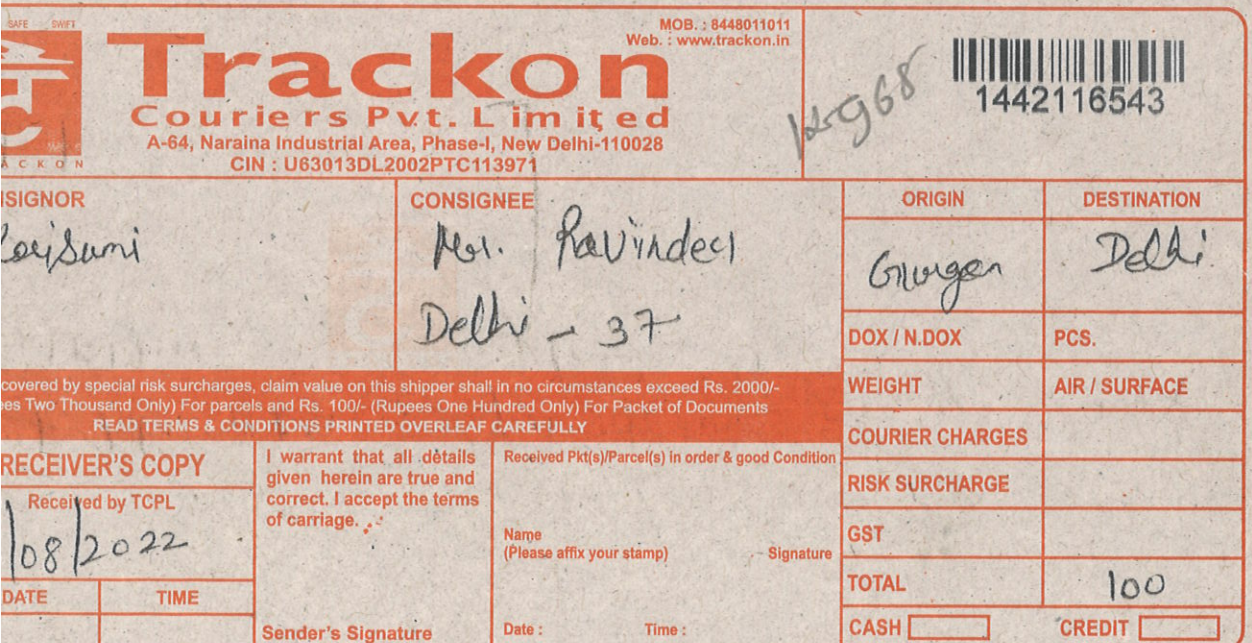 SAFE SWIFT
TRACKON
Trackon
Couriers Pvt. Limited
A-64, Naraina Industrial Area, Phase-I, New Delhi-110028
CIN : U63013DL2002PTC113971
MOB. : 8448011011
Web. : www.trackon.in
1442116543
NSIGNOR
CONSIGNEE
Mr. Ravinder
Delhi - 37
ORIGIN
DESTINATION
Gurgaon
Delhi
DOX / N.DOX
PCS.
WEIGHT
AIR / SURFACE
COURIER CHARGES
RISK SURCHARGE
GST
TOTAL
100
CASH
CREDIT
covered by special risk surcharges, claim value on this shipper shall in no circumstances exceed Rs. 2000/-
ees Two Thousand Only) For parcels and Rs. 100/- (Rupees One Hundred Only) For Packet of Documents
READ TERMS & CONDITIONS PRINTED OVERLEAF CAREFULLY
RECEIVER'S COPY
Received by TCPL
/08/2022
DATE
TIME
I warrant that all details
given herein are true and
correct. I accept the terms
of carriage.
Sender's Signature
Received Pkt(s)/Parcel(s) in order & good Condition
Name
(Please affix your stamp)
Signature
Date :
Time :